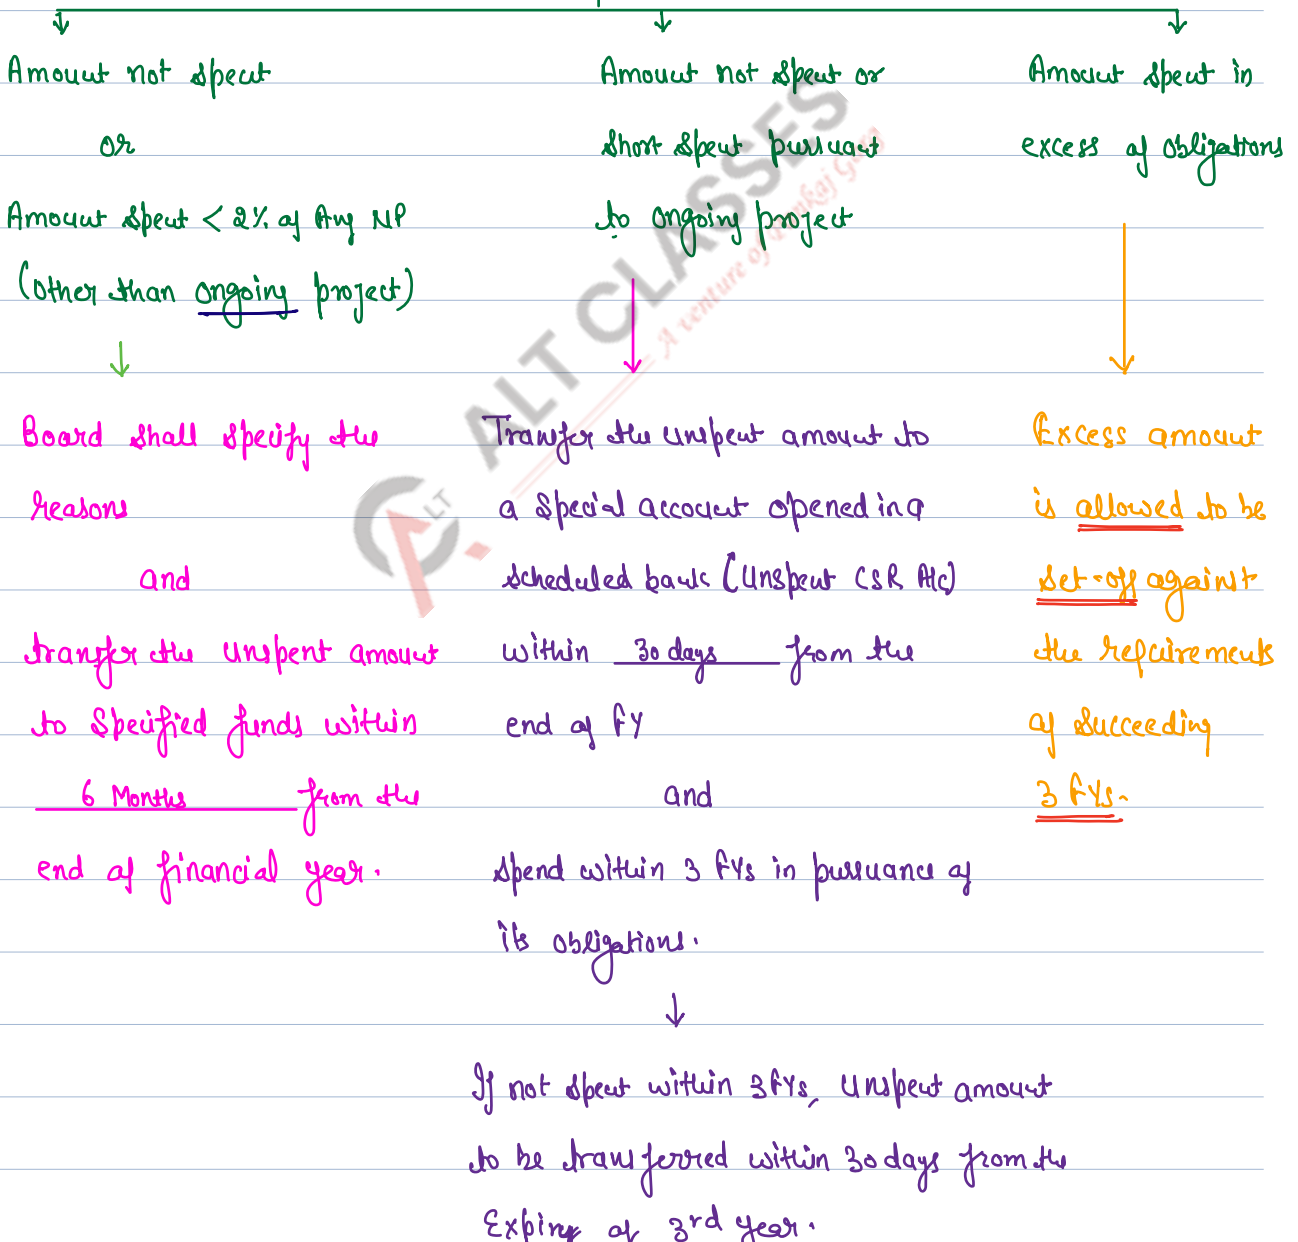 Amount not spent
or
Amount spent < 2% of Avg NP
(other than ongoing project)
Board shall specify the
reasons
and
transfer the unspent amount
to specified funds within
6 Months from the
end of financial year.
Amount not spent or
short spent pursuant
to ongoing project
Transfer the unspent amount to
a special account opened in a
scheduled bank (Unspent CSR A/c)
within 30 days from the
end of FY
and
spend within 3 FYs in pursuance of
its obligations.
If not spent within 3 FYs, unspent amount
to be transferred within 30 days from the
Expiry of 3rd year.
Amount spent in
excess of obligations
Excess amount
is allowed to be
set-off against
the requirements
of succeeding
3 FYs.
ALT CLASSES
A venture of Pankaj Garg
LT